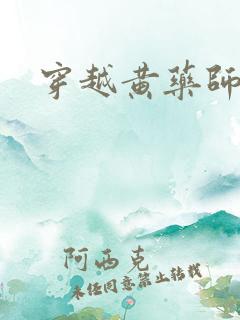 穿越黄药师
阿西克
未经同意禁止转载